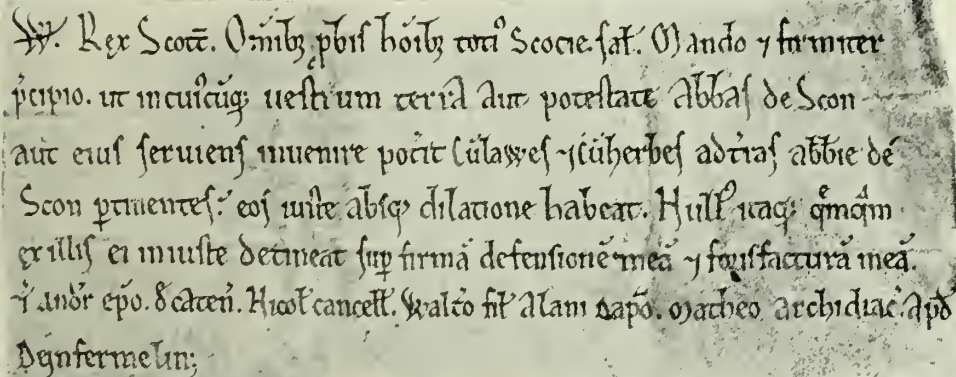 W. Rex Scott̄. Om̄ibꝫ ꝓbis hōibꝫ toti᷒ Scocie. sał. Mando ⁊ firmiter
p̄cipio. ut in cui᷒cūqꝫ uestrum terra aut potestate abbas de Scon
aut eius seruiens inuenire pot̄it Cūlawes ⁊ cūherbes ad t̄ras abb̄ie de
Scon ꝑtinentes. eos iuste absqꝫ dilatione habeat. Null᷒ itaqꝫ q̄mq̄m
ex illis ei iniuste detineat suꝑ firmā defensionē meā ⁊ forisfacturā meā.
T̄. Andr̄ ep̄o. d̄ caten̄. Nicoł cancełł. Walt̄o fił Alani dap̄o. Matheo archidiac̄. apđ
Dunfermelin;